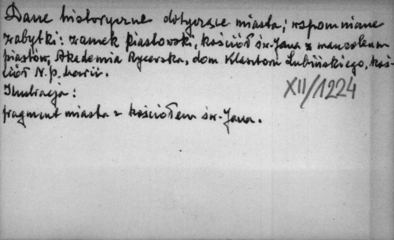 Dane historyczne dotyczące miasta; wspomniane
zabytki: zamek piastowski, kościół św. Jana z mauzoleum
piastów, Akademia Rycerska, dom Klasztoru Lubińskiego, koś-
ciół N.P. Marii.
XII/1224
Ilustracja:
fragment miasta z kościołem św. Jana.